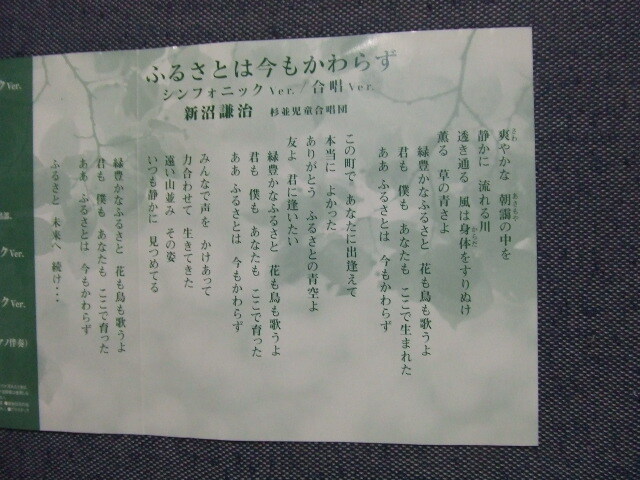 ふるさとは今もかわらず
シンフォニックVer. / 合唱Ver.
新沼謙治 杉並児童合唱団
爽やかな 朝靄の中を
静かに 流れる川
透き通る 風は身体をすりぬけ
薫る 草の青さよ
緑豊かなふるさと 花も鳥も歌うよ
君も 僕も あなたも ここで生まれた
ああ ふるさとは 今もかわらず
この町で あなたに出逢えて
本当に よかった
ありがとう ふるさとの青空よ
友よ 君に逢いたい
緑豊かなふるさと 花も鳥も歌うよ
君も 僕も あなたも ここで育った
ああ ふるさとは 今もかわらず
みんなで声を かけあって
力合わせて 生きてきた
遠い山並み その姿
いつも静かに 見つめてる
緑豊かなふるさと 花も鳥も歌うよ
君も 僕も あなたも ここで育った
ああ ふるさとは 今もかわらず
ふるさと 未来へ 続け・・・
クVer.
クVer.
クVer.
アノ伴奏)